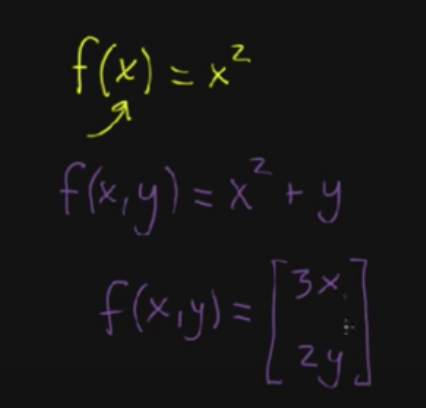 f(x) = x²
f(x,y) = x² + y
f(x,y) = [3x
2y]